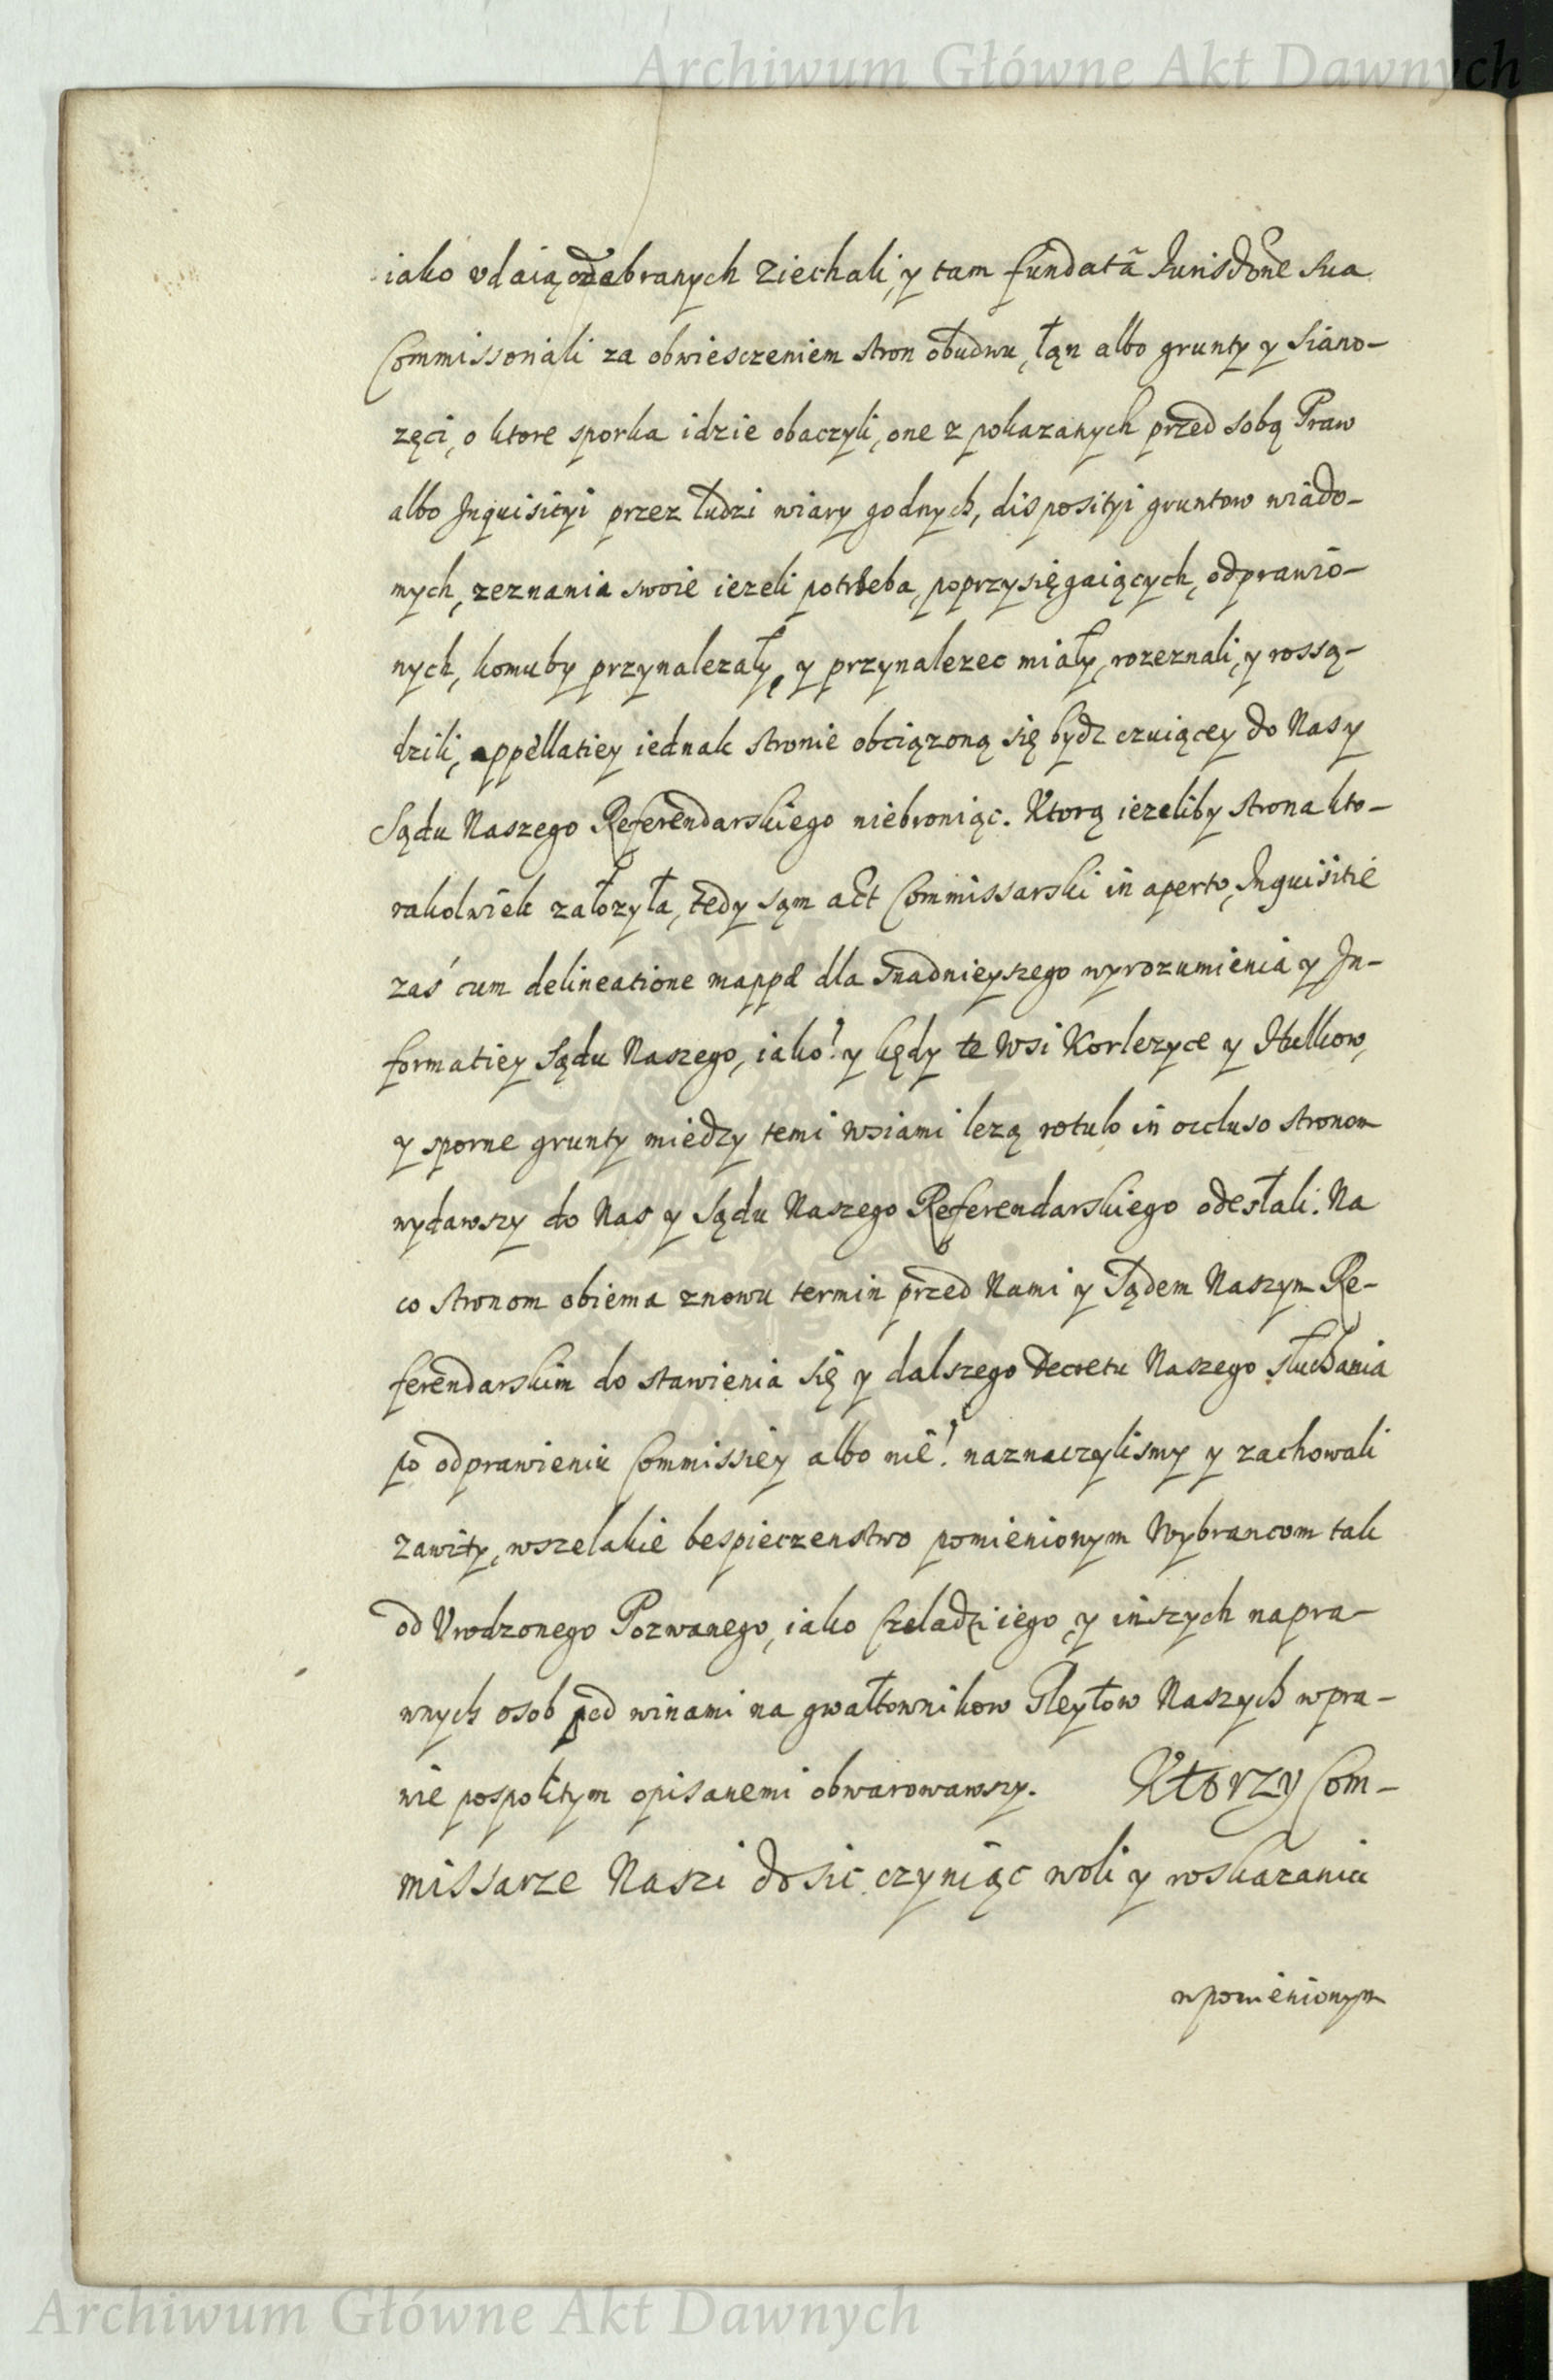 Archiwum Główne Akt Dawnych
iako vdaią odebranych ziechali, y tam fundatã Jurisdõne sua
Commissoriali za obwiesczeniem stron obudwu, łąn albo grunty y siano-
zęci, o ktore sporka idzie obaczyli, one z pokazanych przed sobą Praw
albo Inquisityi przez ludzi wiary godnych, disposityi gruntow wiado-
mych, zeznania swoie iezeli potrzeba, poprzysięgaiących, odprawio-
nych, komuby przynalezały, y przynalezec miały, rozeznali, y rossą-
dzili, appellatiey iednak stronie obciązoną się bydz czuiącey do Nas y
Sądu Naszego Referendarskiego niebroniąc. Ktorą iezeliby strona kto-
rakolwiek załozyła, tedy sąm act Commissarski in aperto, Inquisitie
zaś cum delineatione mappæ dla snadnieyszego wyrozumienia y In-
formatiey Sądu Naszego, iako? y kędy te Wsi Korlezyce y
y sporne grunty miedzy temi wsiami lezą rotulo in occluso stronom
wydawszy do Nas y Sądu Naszego Referendarskiego odesłali. Na
co stronom obiema znowu termin przed Nami y Sądem Naszym Re-
ferendarskim do stawienia się y dalszego Decretu Naszego słuchania
po odprawieniu Commissiey albo nie! naznaczylismy y zachowali
zawity, wszelakie bespieczenstwo pomienionym Wybrancom tak
od Vrodzonego Pozwanego, iako Czeladzi iego, y inszych napra-
wnych osob pod winami na gwałtownikow Gleytow Naszych w pra-
wie pospolitym opisanemi obwarowawszy. Ktorzy Com-
missarze Naszi dosic czyniąc woli y roskazaniu
w pomienionym
Archiwum Główne Akt Dawnych